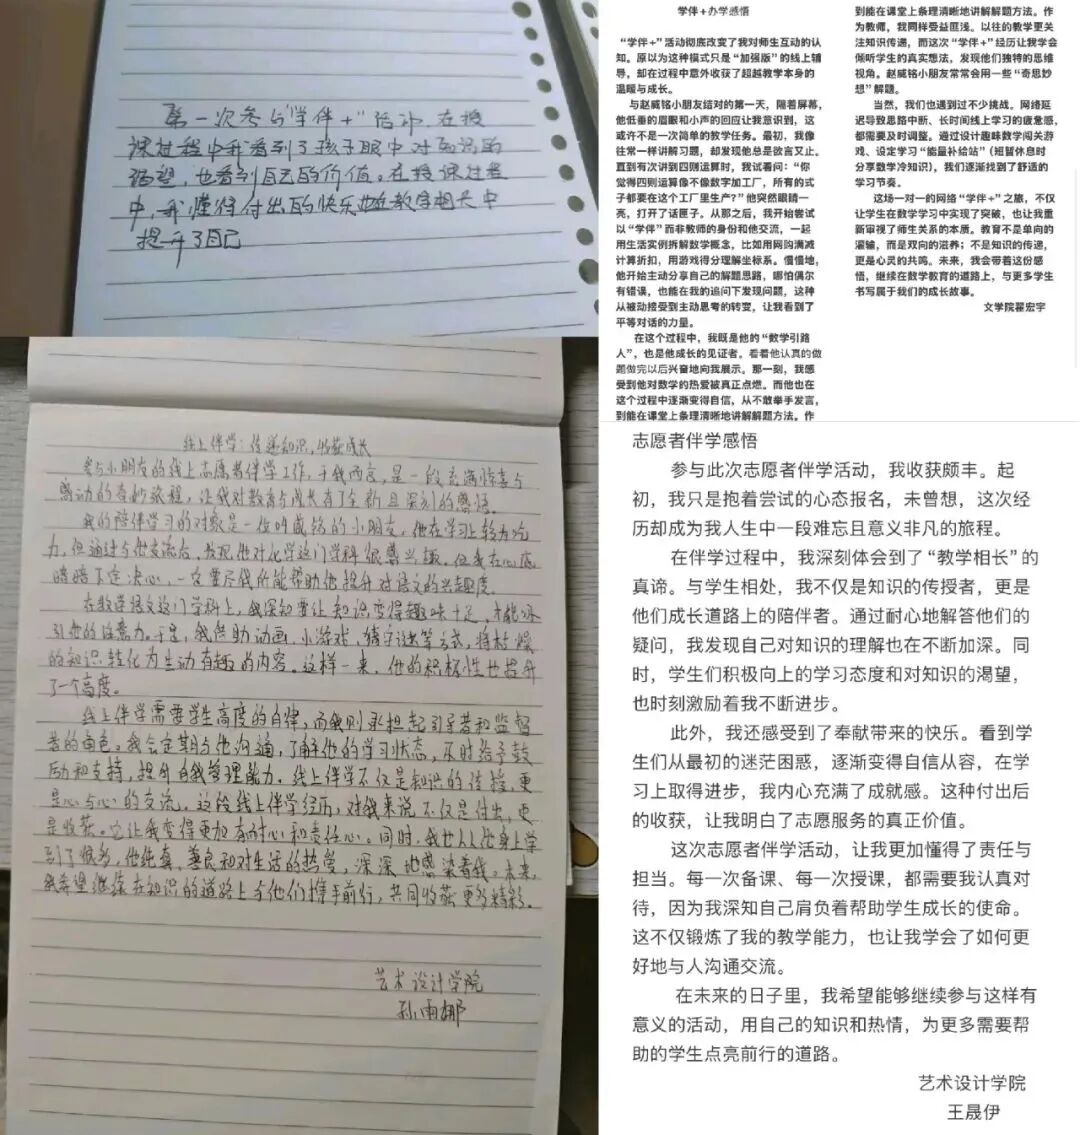 第一次参与“学伴+”活动,在授
课过程中我看到了孩子眼中对知识的
渴望,也看到自己的价值。在授课过程
中,我懂得付出的快乐也在教学相长中
提升了自己
学伴+办学感悟
“学伴+”活动彻底改变了我对师生互动的认
知。原以为这种模式只是“加强版”的线上辅
导,却在过程中意外收获了超越教学本身的
温暖与成长。
与赵威铭小朋友结对的第一天,隔着屏幕,
他低垂的眉眼和小声的回应让我意识到,这
或许不是一次简单的教学任务。最初,我像
往常一样讲解习题,却发现他总是欲言又止。
直到有次讲到四则运算时,我试着问:“你
觉得四则运算像不像数字加工厂,所有的式
子都要在这个工厂里生产?”他突然眼睛一
亮,打开了话匣子。从那之后,我开始尝试
以“学伴”而非教师的身份和他交流,一起
用生活实例拆解数学概念,比如用网购满减
计算折扣,用游戏得分理解坐标系。慢慢地,
他开始主动分享自己的解题思路,哪怕偶尔
有错误,也能在我的追问下发现问题,这种
从被动接受到主动思考的转变,让我看到了
平等对话的力量。
在这个过程中,我既是他的“数学引路
人”,也是他成长的见证者。看着他认真的做
题做完以后兴奋地向我展示。那一刻,我感
受到他对数学的热爱被真正点燃。而他也在
这个过程中逐渐变得自信,从不敢举手发言,
到能在课堂上条理清晰地讲解解题方法。作
到能在课堂上条理清晰地讲解解题方法。作
为教师,我同样受益匪浅。以往的教学更关
注知识传递,而这次“学伴+”经历让我学会
倾听学生的真实想法,发现他们独特的思维
视角。赵威铭小朋友常常会用一些“奇思妙
想”解题。
当然,我们也遇到过不少挑战。网络延
迟导致思路中断、长时间线上学习的疲惫感,
都需要及时调整。通过设计趣味数学闯关游
戏、设定学习“能量补给站”(短暂休息时
分享数学冷知识),我们逐渐找到了舒适的
学习节奏。
这场一对一的网络“学伴+”之旅,不仅
让学生在数学学习中实现了突破,也让我重
新审视了师生关系的本质。教育不是单向的
灌输,而是双向的滋养;不是知识的传递,
更是心灵的共鸣。未来,我会带着这份感
悟,继续在数学教育的道路上,与更多学生
书写属于我们的成长故事。
文学院翟宏宇
线上伴学:传递知识,收获成长
参与小朋友的线上志愿者伴学工作,于我而言,是一段充满惊喜与
感动的奇妙旅程,让我对教育与成长有了全新且深刻的感悟。
我的陪伴学习的对象是一位叫威铭的小朋友,他在学习上较为吃
力,但通过与他交流后,发现他对化学这门学科很感兴趣,但我在心底
暗暗下定决心,一定要尽我所能帮助他提升对语文的兴趣度。
在教学语文这门学科上,我深知要让知识变得趣味十足,才能吸
引他的注意力。于是,我借助动画、小游戏、猜字谜等方式,将枯燥
的知识转化为生动有趣的内容。这样一来,他的积极性也提升
了一个高度。
线上伴学需要学生高度的自律,而我则承担起引导者和监督
者的角色。我会定期与他沟通,了解他的学习状态,及时给予鼓
励和支持,提升自我管理能力。线上伴学不仅是知识的传授,更
是心与心的交流。这段线上伴学经历,对我来说不仅是付出,更
是收获。它让我变得更加有耐心和责任心。同时,我也从他身上学
到了很多,他纯真、善良和对生活的热爱,深深地感染着我。未来,
我希望继续在知识的道路上与他们携手前行,共同收获更多精彩。
艺术设计学院
孙雨娜
志愿者伴学感悟
参与此次志愿者伴学活动,我收获颇丰。起
初,我只是抱着尝试的心态报名,未曾想,这次经
历却成为我人生中一段难忘且意义非凡的旅程。
在伴学过程中,我深刻体会到了“教学相长”的
真谛。与学生相处,我不仅是知识的传授者,更是
他们成长道路上的陪伴者。通过耐心地解答他们的
疑问,我发现自己对知识的理解也在不断加深。同
时,学生们积极向上的学习态度和对知识的渴望,
也时刻激励着我不断进步。
此外,我还感受到了奉献带来的快乐。看到学
生们从最初的迷茫困惑,逐渐变得自信从容,在学
习上取得进步,我内心充满了成就感。这种付出后
的收获,让我明白了志愿服务的真正价值。
这次志愿者伴学活动,让我更加懂得了责任与
担当。每一次备课、每一次授课,都需要我认真对
待,因为我深知自己肩负着帮助学生成长的使命。
这不仅锻炼了我的教学能力,也让我学会了如何更
好地与人沟通交流。
在未来的日子里,我希望能够继续参与这样有
意义的活动,用自己的知识和热情,为更多需要帮
助的学生点亮前行的道路。
艺术设计学院
王晟伊